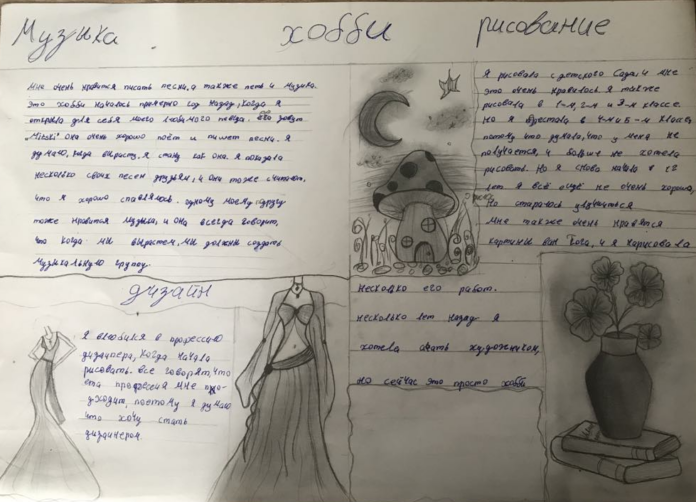 Музыка
хобби
рисование
Мне очень нравится писать песни, а также петь и музыка.
Это хобби началось примерно год назад, когда я
открыла для себя моего любимого певца. его зовут
"Mitski" она очень хорошо поёт и пишет песни. Я
думаю, когда вырасту, я стану как она. Я показала
несколько своих песен друзьям, и они тоже считают,
что я хорошо справляюсь. одному моему другу
тоже нравится музыка, и она всегда говорит,
что когда мы вырастем, мы должны создать
музыкальную группу.
Я рисовала с детского сада, и мне
это очень нравилось я также
рисовала в 1-м, 2-м и 3-м классе.
Но я бросила в 4-м и 5-м классе,
потому что думала, что у меня не
получается, и больше не хотела
рисовать. Но я снова начала в
лет я всё ещё не очень хороша,
Но стараюсь улучшится
Мне также очень нравятся
картины Ван Гога, и я нарисовала
несколько его работ.
несколько лет назад я
хотела стать художником,
но сейчас это просто хобби
дизайн
Я влюбился в профессию
дизайнера, когда начала
рисовать. все говорят, что
эта профессия мне по-
дходит, поэтому я думаю
что хочу стать
дизайнером.